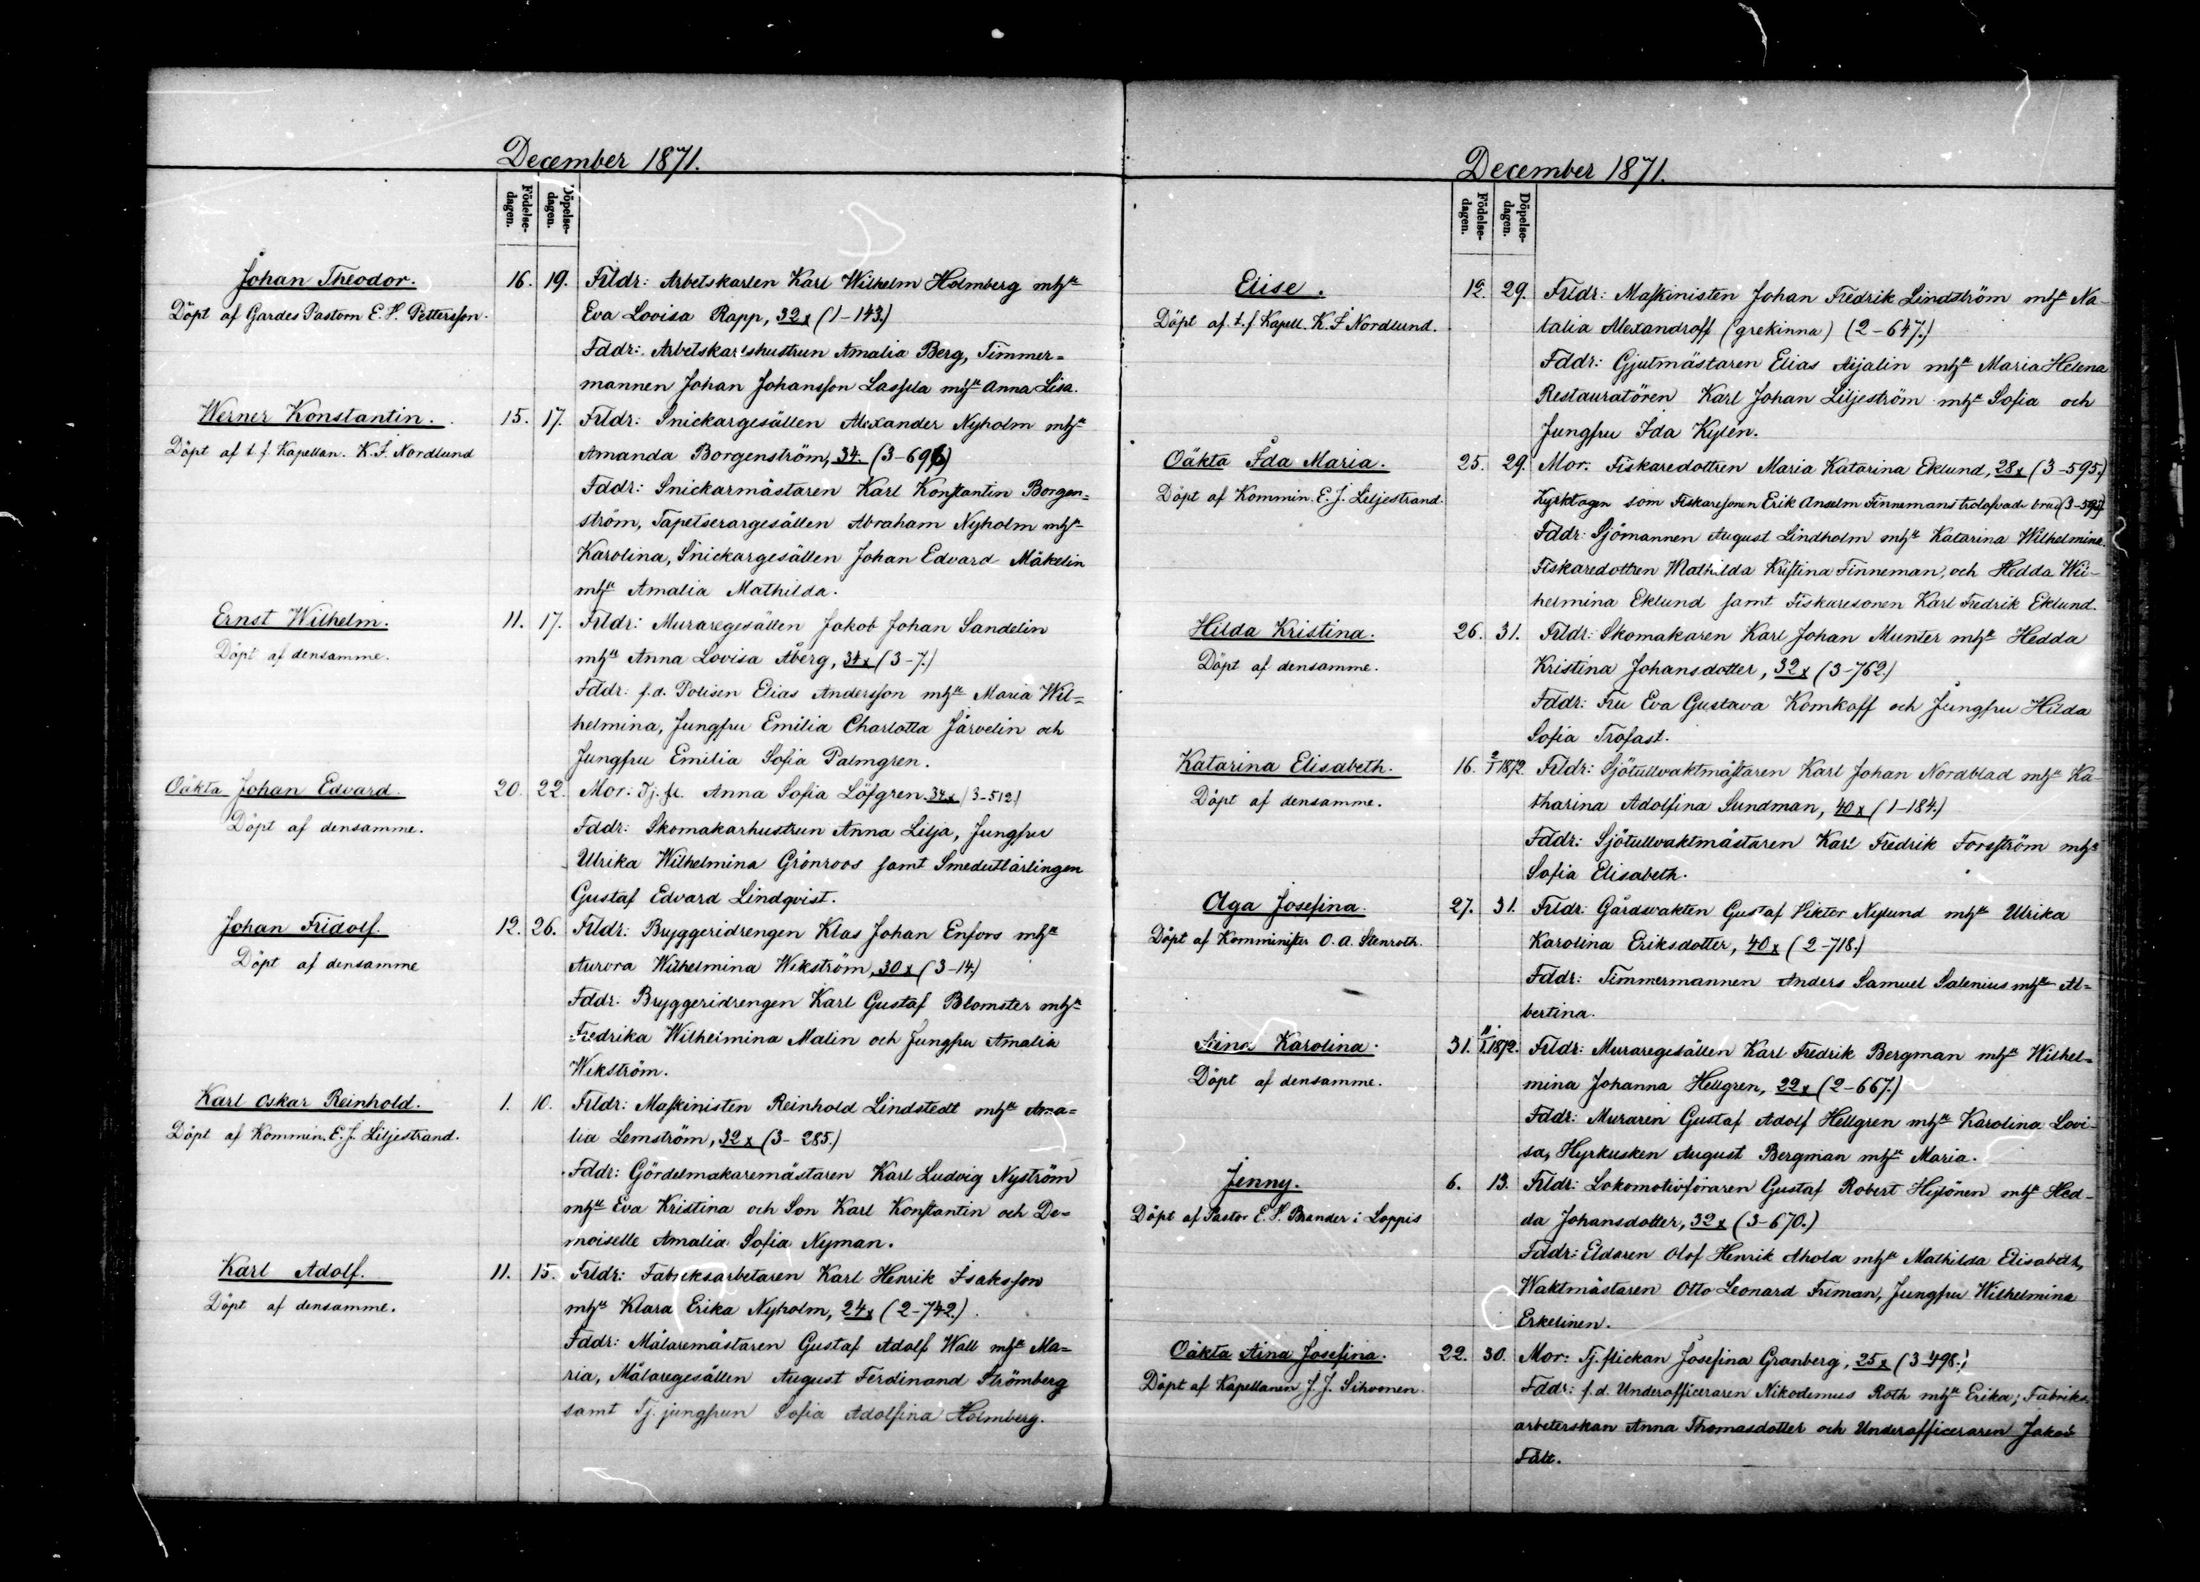 December 1871.
Födelse-dagen.
Döpelse-dagen.
Johan Theodor. 16. 19. Frldr: Arbetskarlen Karl Wilhelm Holmberg mhu
Döpt af Gardes Pastorn E. H. Pettersson. Eva Lovisa Rapp, 32x (1-143.)
Fddr: Arbetskarlshustrun Amalia Berg, Timmer=
mannen Johan Johansson Lassila mhu Anna Lisa.
Werner Konstantin. 15. 17. Frldr: Snickargesällen Alexander Nyholm mhu
Döpt af t. f. Kapellan. K. F. Nordlund Amanda Borgenström, 34. (3-696)
Fddr: Snickarmästaren Karl Konstantin Borgen=
ström, Tapetserargesällen Abraham Nyholm mhu
Karolina, Snickargesällen Johan Edvard Mäkelin
mhu Amalia Mathilda.
Ernst Wilhelm. 11. 17. Frldr: Muraregesällen Jakob Johan Sandelin
Döpt af densamme. mhu Anna Lovisa Åberg, 34x (3-7.)
Fddr: f.d. Polisen Elias Andersson mhu Maria Wil=
helmina, Jungfru Emilia Charlotta Järvelin och
Jungfru Emilia Sofia Palmgren.
Oäkta Johan Edvard. 20. 22. Mor: Tj. fl. Anna Sofia Löfgren. 34x (3-512)
Döpt af densamme. Fddr: Skomakarhustrun Anna Lilja, Jungfru
Ulrika Wilhelmina Grönroos samt Smedutlärlingen
Gustaf Edvard Lindqvist.
Johan Fridolf. 12. 26. Frldr: Bryggeridrengen Klas Johan Enfors mhu
Döpt af densamme Aurora Wilhelmina Wikström, 30x (3-14.)
Fddr: Bryggeridrengen Karl Gustaf Blomster mhu
Fredrika Wilhelmina Malin och Jungfru Amalia
Wikström.
Karl Oskar Reinhold. 1. 10. Frldr: Maskinisten Reinhold Lindstedt mhu Ama=
Döpt af Kommin. E. J. Liljestrand. lia Lemström, 32x (3-285.)
Fddr: Gördelmakaremästaren Karl Ludvig Nyström
mhu Eva Kristina och Son Karl Konstantin och De=
moiselle Amalia Sofia Nyman.
Karl Adolf. 11. 15. Frldr: Fabriksarbetaren Karl Henrik Isaksson
Döpt af densamme. mhu Klara Erika Nyholm, 24x (2-742.)
Fddr: Målaremästaren Gustaf Adolf Wall mhu Ma=
ria, Målaregesällen August Ferdinand Strömberg
samt Tj. jungfrun Sofia Adolfina Holmberg.
December 1871.
Födelse-dagen.
Döpelse-dagen.
Elise. 12. 29. Frldr: Maskinisten Johan Fredrik Lindström mhu Na-
Döpt af t. f. Kapell. K. F. Nordlund. talia Alexandroff (grekinna) (2-647.)
Fddr: Gjutmästaren Elias Aijalin mhu Maria Helena
Restauratören Karl Johan Liljeström mhu Sofia och
Jungfru Ida Kylen.
Oäkta Ida Maria. 25. 29. Mor: Fiskaredottren Maria Katarina Eklund, 28x (3-595.)
Döpt af Kommin. E. J. Liljestrand. Kyrktagen som Fiskaresonen Erik Anselm Finnemans trolofvade brud (3-595)
Fddr: Sjömannen August Lindholm mhu Katarina Wilhelmina.
Fiskaredottren Mathilda Kristina Finneman, och Hedda Wil-
helmina Eklund samt Fiskaresonen Karl Fredrik Eklund.
Hilda Kristina. 26. 31. Frldr: Skomakaren Karl Johan Munter mhu Hedda
Döpt af densamme. Kristina Johansdotter, 32x (3-762.)
Fddr: Fru Eva Gustava Komkoff och Jungfru Hilda
Sofia Trofast.
Katarina Elisabeth. 16. 2/1 1872. Frldr: Sjötullvaktmästaren Karl Johan Nordblad mhu Ka-
Döpt af densamme. tharina Adolfina Sundman, 40x (1-184.)
Fddr: Sjötullvaktmästaren Karl Fredrik Forsström mhu
Sofia Elisabeth.
Olga Josefina. 27. 31. Frldr: Gårdsvakten Gustaf Viktor Nylund mhu Ulrika
Döpt af Komminister O. A. Stenroth. Karolina Eriksdotter, 40x (2-718.)
Fddr: Timmermannen Anders Samuel Salenius mhu Al=
bertina.
Aina Karolina. 31. 11/1 1872. Frldr: Muraregesällen Karl Fredrik Bergman mhu Wilhel=
Döpt af densamme. mina Johanna Hellgren, 22x (2-667.)
Fddr: Muraren Gustaf Adolf Hellgren mhu Karolina Lovi-
sa, Hyrkusken August Bergman mhu Maria.
Jenny. 6. 13. Frldr: Lokomotivföraren Gustaf Robert Hylönen mhu Hed-
Döpt af Pastor E. H. Brander i Loppis da Johansdotter, 32x (3-670.)
Fddr: Eldaren Olof Henrik Ahola mhu Mathilda Elisabeth,
Waktmästaren Otto Leonard Friman, Jungfru Wilhelmina
Erkelinen.
Oäkta Aina Josefina. 22. 30. Mor: Tj. flickan Josefina Granberg, 25x (3-498.)
Döpt af Kapellanen J. J. Sihvonen. Fddr: f.d. Underofficeraren Nikodemus Roth mhu Erika; Fabriks-
arbeterskan Anna Thomasdotter och Underofficeraren Jakob
Fält.